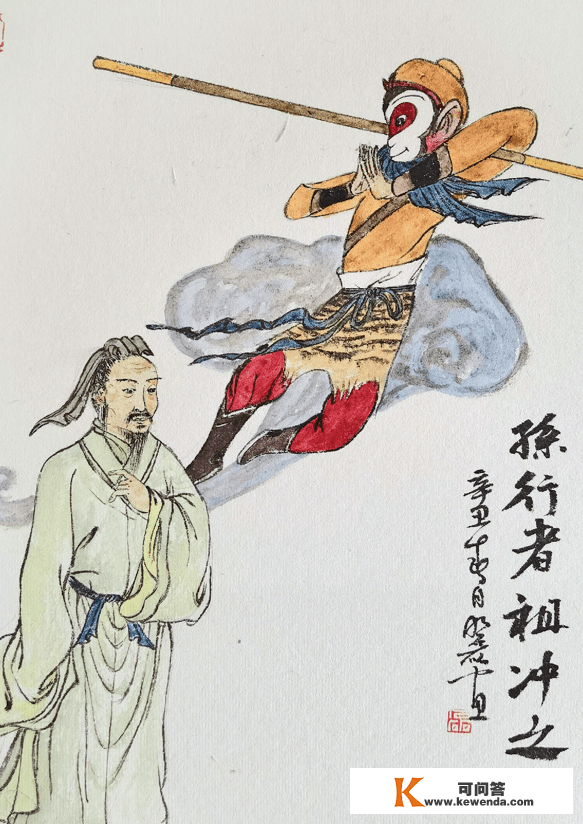 孫行者祖冲之
辛丑春月
可问答
www.kewenda.com